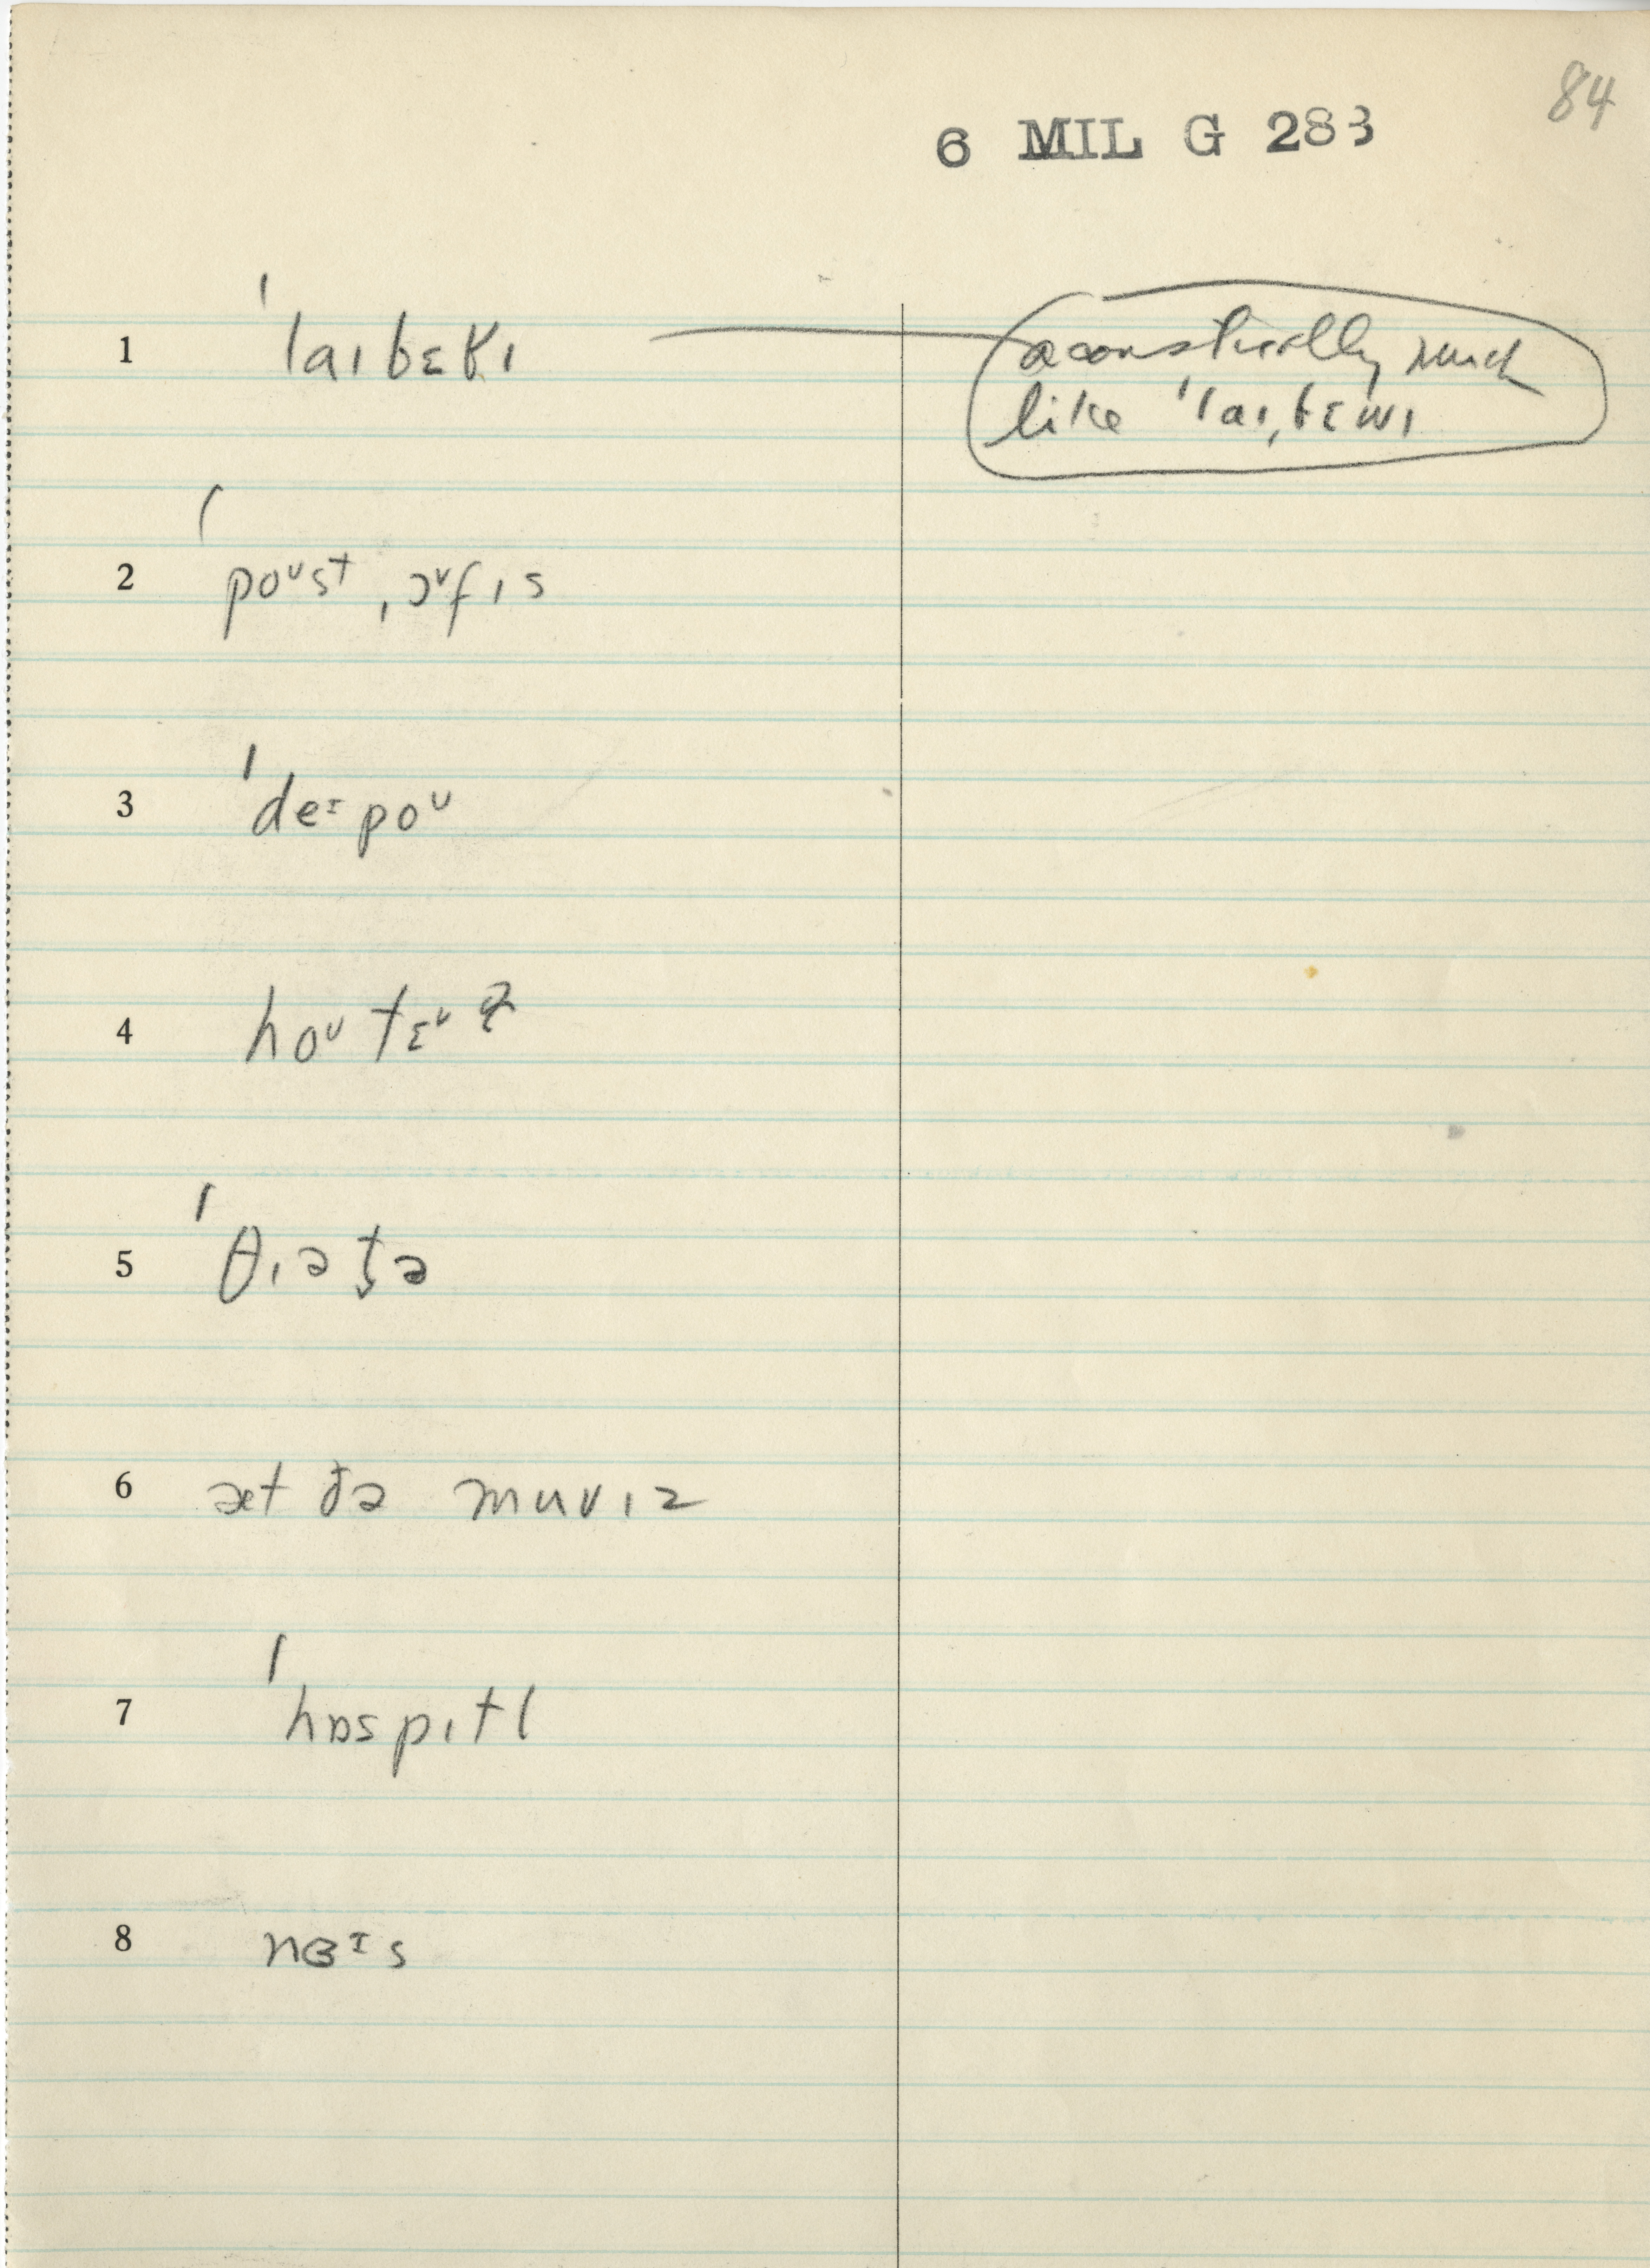 84
6 MIL G 283
1 ˈlaɪbɛʁɪ
acoustically much
like ˈlaɪˌbɛwɪ
2 ˈpoᶷst ˌɔᶷfɪs
3 ˈdeᶦpoᶷ
4 hoᶷtɛᶷ
5 ˈθɪət̬ə
6 æt ðə muvɪz
7 ˈhɒspɪtl
8 nɜᶦs